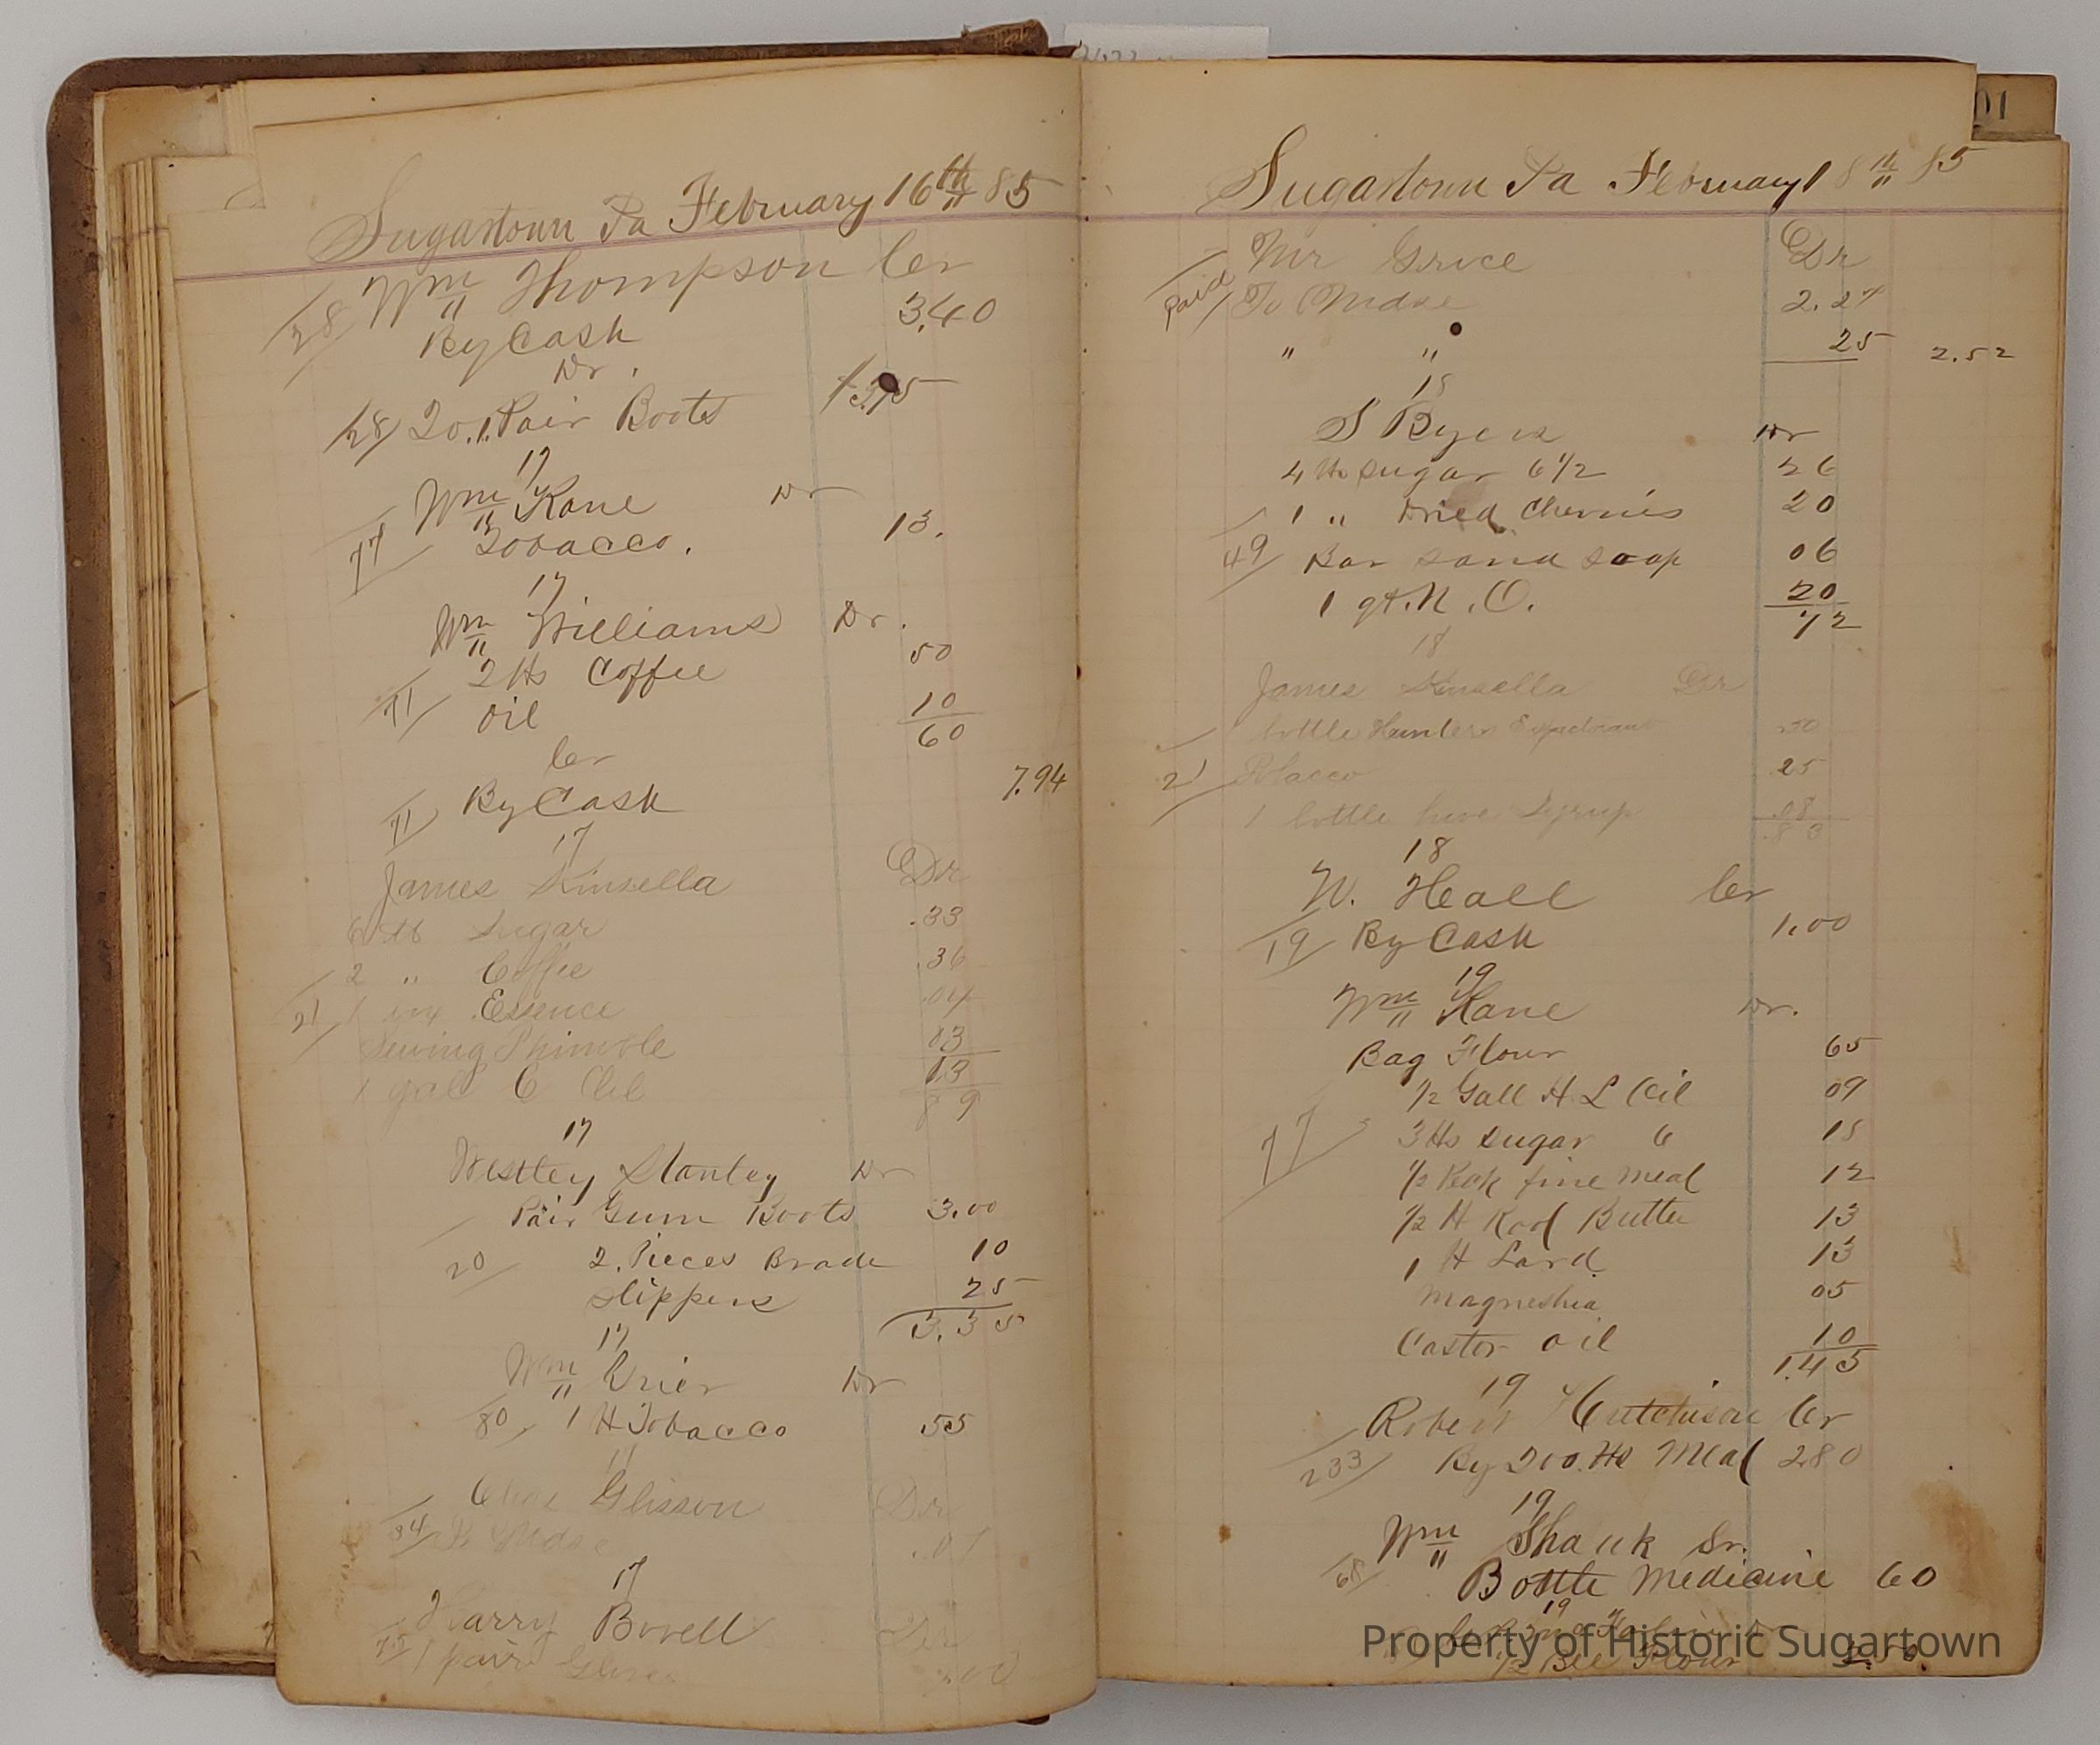 Sugartown Pa February 16th 85
Wm Thompson Cr
28 By Cash 3.40
Dr.
28 To. 1. Pair Boots 3.75
17
Wm Kane Dr
77 Tobacco. 13.
17
Wm Williams Dr.
2 lbs Coffee 50
71 Oil 10
60
Cr
71 By Cash 7.94
17
James Kinsella Dr
6 lb Sugar .33
2 " Coffee .36
21 1 Essence .04
Sewing Thimble 03
1 gal C Oil 13
89
17
Westley Stanley Dr
Pair Gum Boots 3.00
20 2. Pieces Brade 10
Slippers 25
3.35
17
Wm Grier Dr
80 1 lb Tobacco 55
17
Glisson Dr
34 Mdse
17
Harry Bovell Dr
1 pair
Sugartown Pa February 18th 85
Mr Grice Dr
Paid To Mdse 2.27
" " 25 2.52
18
S Byers Dr
4 lbs Sugar 6 1/2 26
1 " Dried Cherries 20
49 Bar Sand Soap 06
1 qt. N. O. 20
72
18
James Kinsella Dr
1 bottle Hunters Expectorant 50
21 Tobacco 25
1 bottle hive Syrup .08
.83
18
W. Heall Cr
19 By Cash 1.00
19
Wm Kane Dr.
Bag Flour 65
1/2 Gall H. L Oil 09
77 3 lbs Sugar 6 18
1/2 Peck fine Meal 12
1/2 lb Roll Butter 13
1 lb Lard. 13
Magneshia 05
Castor oil 10
1.45
19
Robert Hutchison Cr
233 By 200 lbs Meal 2.80
19
Wm Shank Sr.
68 Bottle Medicine 60
19
1/2 Bll Flour 2.50.
Property of Historic Sugartown